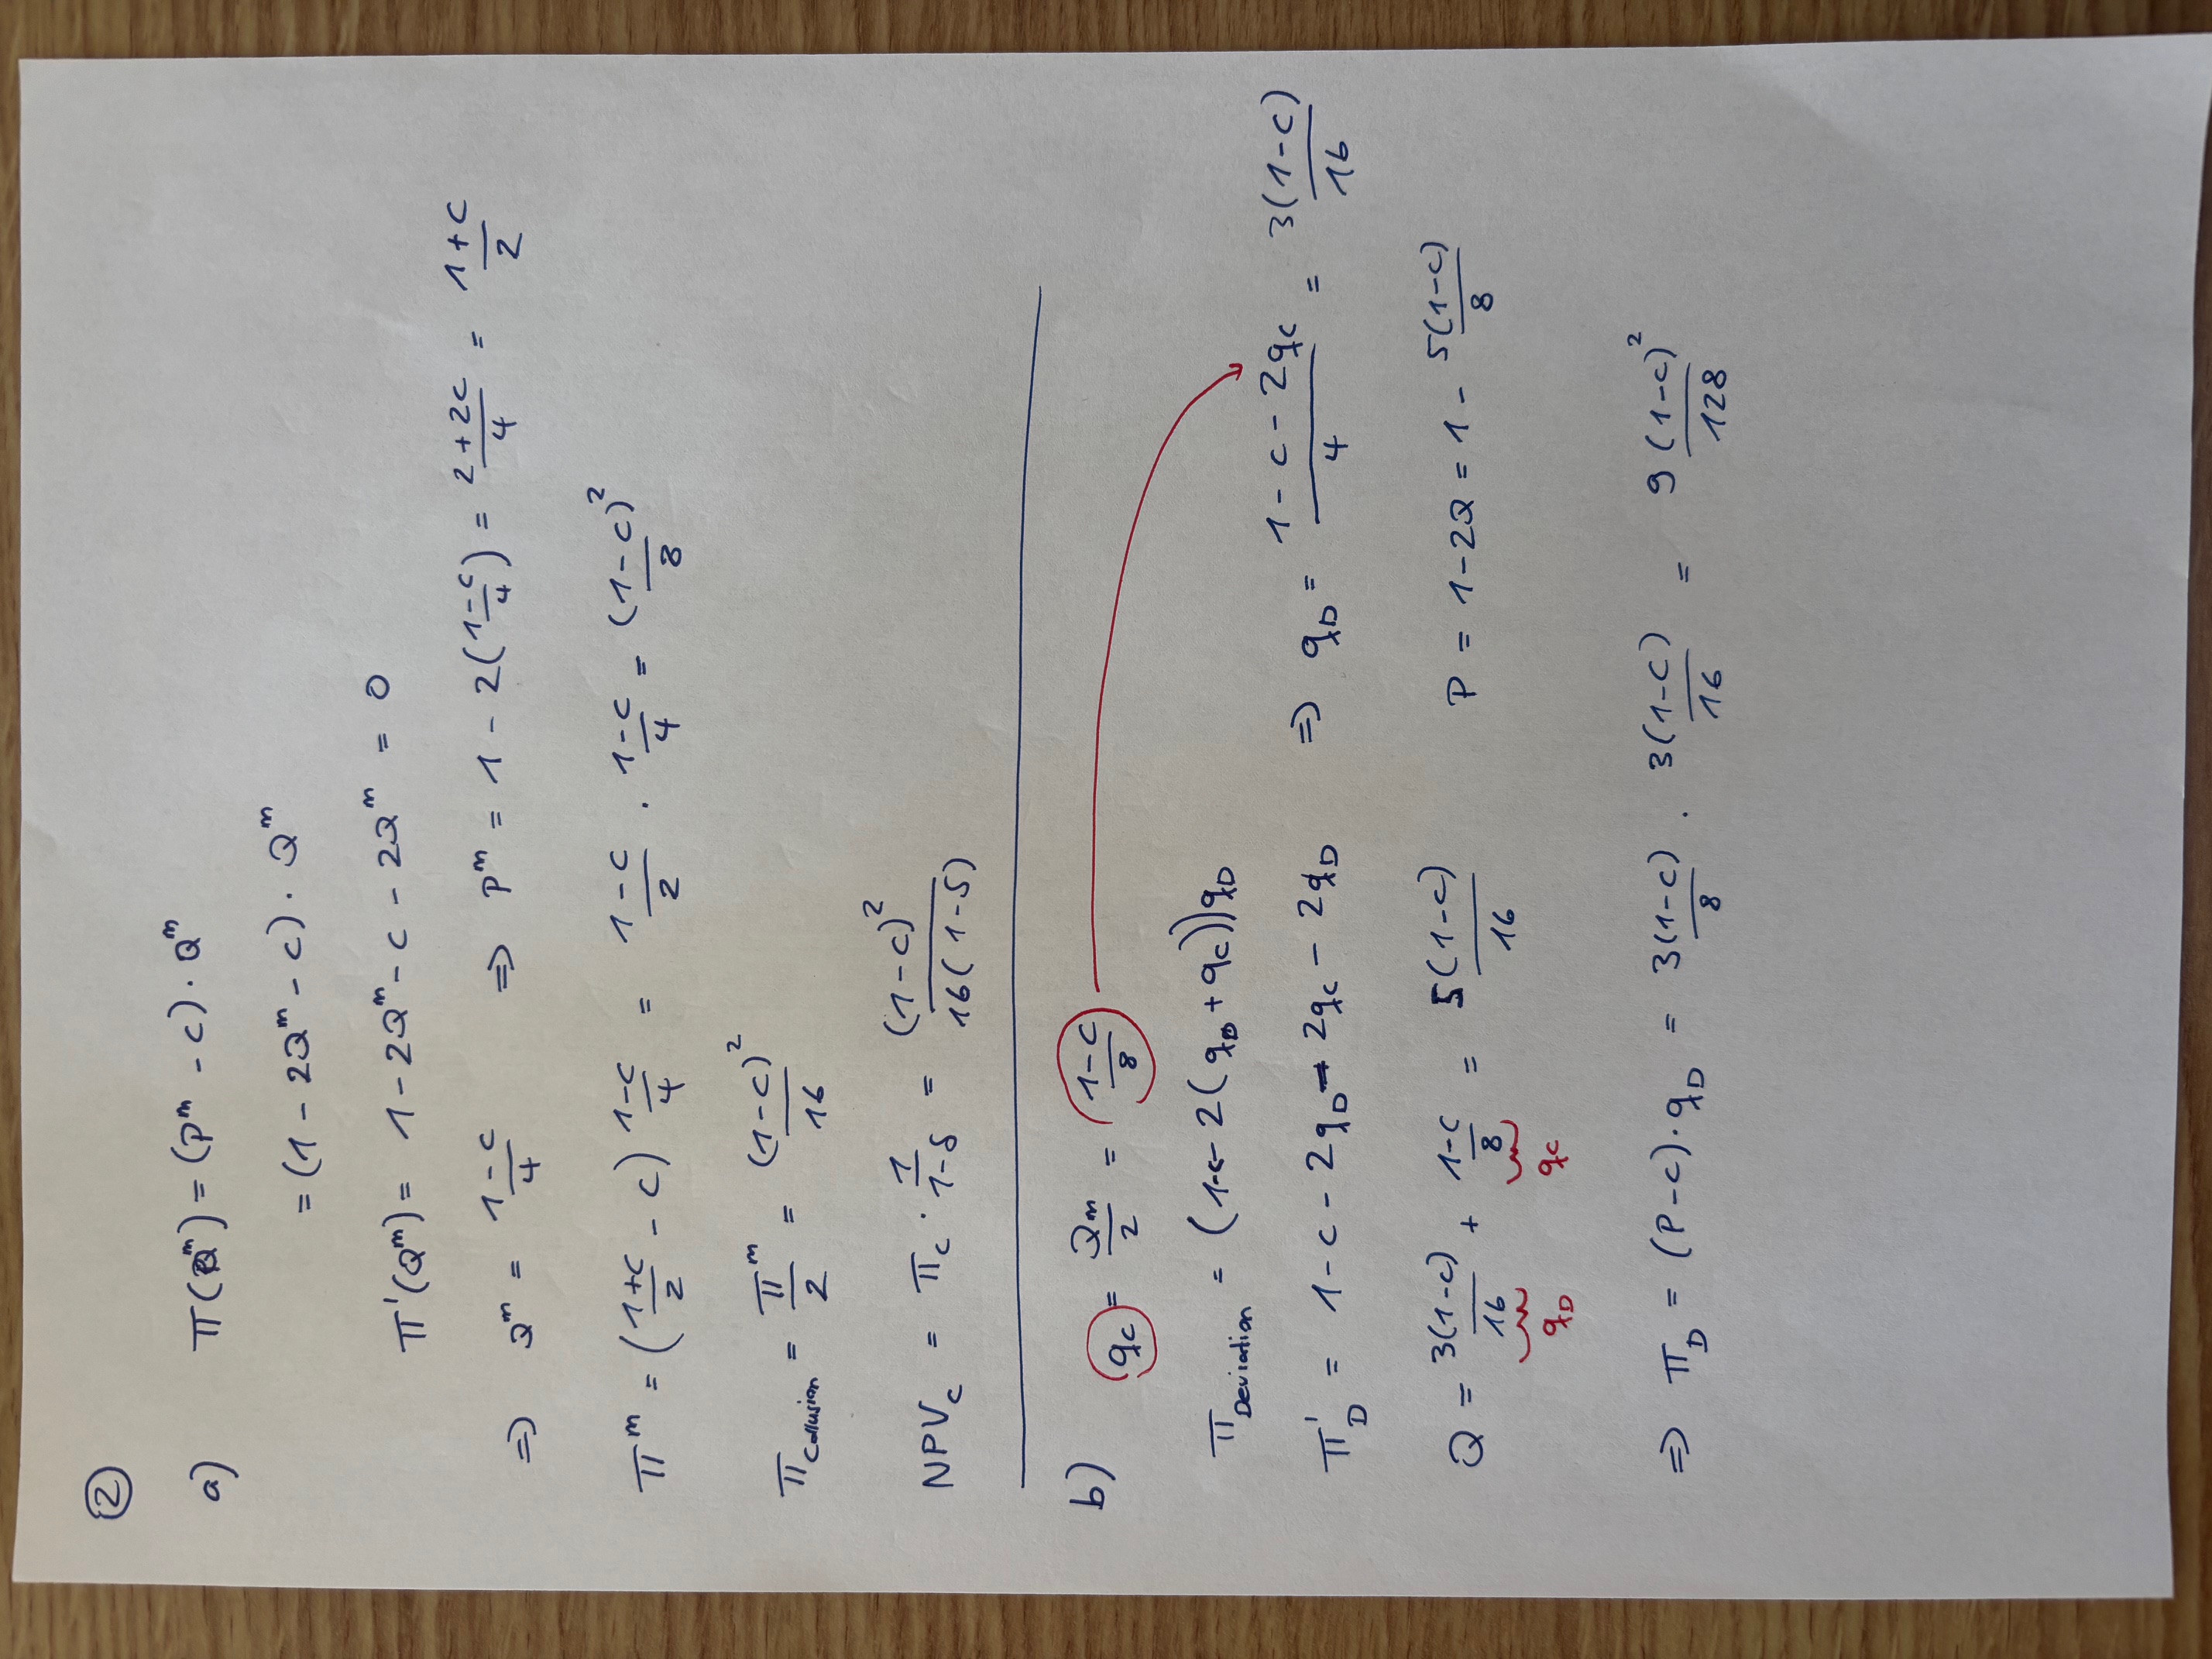 ②
a) π(Qᵐ) = (Pᵐ - c) · Qᵐ
= (1 - 2Qᵐ - c) · Qᵐ
π'(Qᵐ) = 1 - 2Qᵐ - c - 2Qᵐ = 0
⇒ Qᵐ = (1-c)/4 ⇒ Pᵐ = 1 - 2((1-c)/4) = (2+2c)/4 = (1+c)/2
πᵐ = ((1+c)/2 - c) (1-c)/4 = (1-c)/2 · (1-c)/4 = (1-c)²/8
π_Collusion = πᵐ/2 = (1-c)²/16
NPV_C = π_C · 1/(1-δ) = (1-c)²/(16(1-δ))
b) q_C = Qᵐ/2 = (1-c)/8
π_Deviation = (1-c-2(q_D+q_C))q_D
π'_D = 1 - c - 2q_D - 2q_C - 2q_D ⇒ q_D = (1-c-2q_C)/4 = 3(1-c)/16
Q = 3(1-c)/16 + (1-c)/8 = 5(1-c)/16 P = 1-2Q = 1 - 5(1-c)/8
q_D q_C
⇒ π_D = (P-c)·q_D = 3(1-c)/8 · 3(1-c)/16 = 9(1-c)²/128